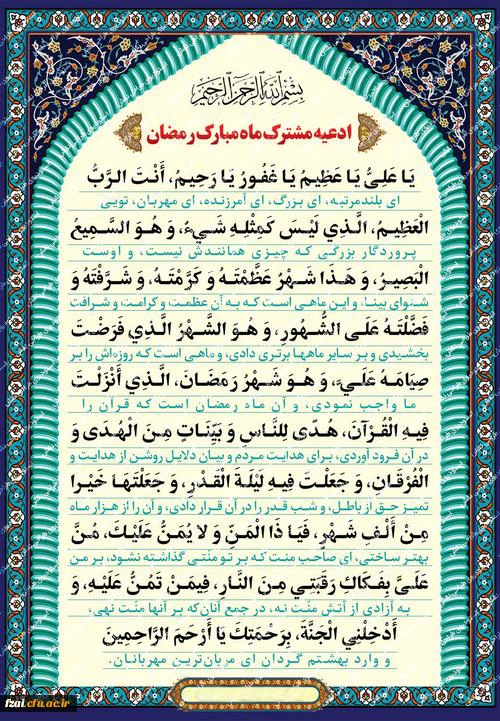 بِسْمِ اللَّهِ الرَّحْمَنِ الرَّحِيمِ
ادعیه مشترک ماه مبارک رمضان
یَا عَلِیُّ یَا عَظِیمُ یَا غَفُورُ یَا رَحِیمُ، أَنْتَ الرَّبُّ
ای بلندمرتبه، ای بزرگ، ای آمرزنده، ای مهربان، تویی
الْعَظِیمُ، الَّذِي لَیْسَ کَمِثْلِهِ شَيْءٌ، وَ هُوَ السَّمِیعُ
پروردگار بزرگی که چیزی همانندش نیست، و اوست
الْبَصِیرُ، وَ هَذَا شَهْرٌ عَظَّمْتَهُ وَ کَرَّمْتَهُ، وَ شَرَّفْتَهُ وَ
شنوای بینا، و این ماهی است که به آن عظمت و کرامت و شرافت
فَضَّلْتَهُ عَلَی الشُّهُورِ، وَ هُوَ الشَّهْرُ الَّذِي فَرَضْتَ
بخشیدی و بر سایر ماهها برتری دادی، و ماهی است که روزه‌اش را بر
صِیَامَهُ عَلَيَّ، وَ هُوَ شَهْرُ رَمَضَانَ، الَّذِي أَنْزَلْتَ
ما واجب نمودی، و آن ماه رمضان است که قرآن را
فِیهِ الْقُرْآنَ، هُدًی لِلنَّاسِ وَ بَیِّنَاتٍ مِنَ الْهُدَی وَ
در آن فرود آوردی، برای هدایت مردم و بیان دلایل روشن از هدایت و
الْفُرْقَانِ، وَ جَعَلْتَ فِیهِ لَیْلَةَ الْقَدْرِ، وَ جَعَلْتَهَا خَیْرا
تمیز حق از باطل، و شب قدر را در آن قرار دادی، و آن را از هزار ماه
مِنْ أَلْفِ شَهْرٍ، فَیَا ذَا الْمَنِّ وَ لا یُمَنُّ عَلَیْكَ، مُنَّ
بهتر ساختی، ای صاحب منت که بر تو منّتی گذاشته نشود، بر من
عَلَیَّ بِفَکَاكِ رَقَبَتِي مِنَ النَّارِ، فِیمَنْ تَمُنُّ عَلَیْهِ، وَ
به آزادی از آتش منّت نه، در جمع آنان که بر آنها منّت نهی،
أَدْخِلْنِي الْجَنَّةَ، بِرَحْمَتِكَ یَا أَرْحَمَ الرَّاحِمِینَ
و وارد بهشتم گردان ای مهربان‌ترین مهربانان.
fzal.cfu.ac.ir